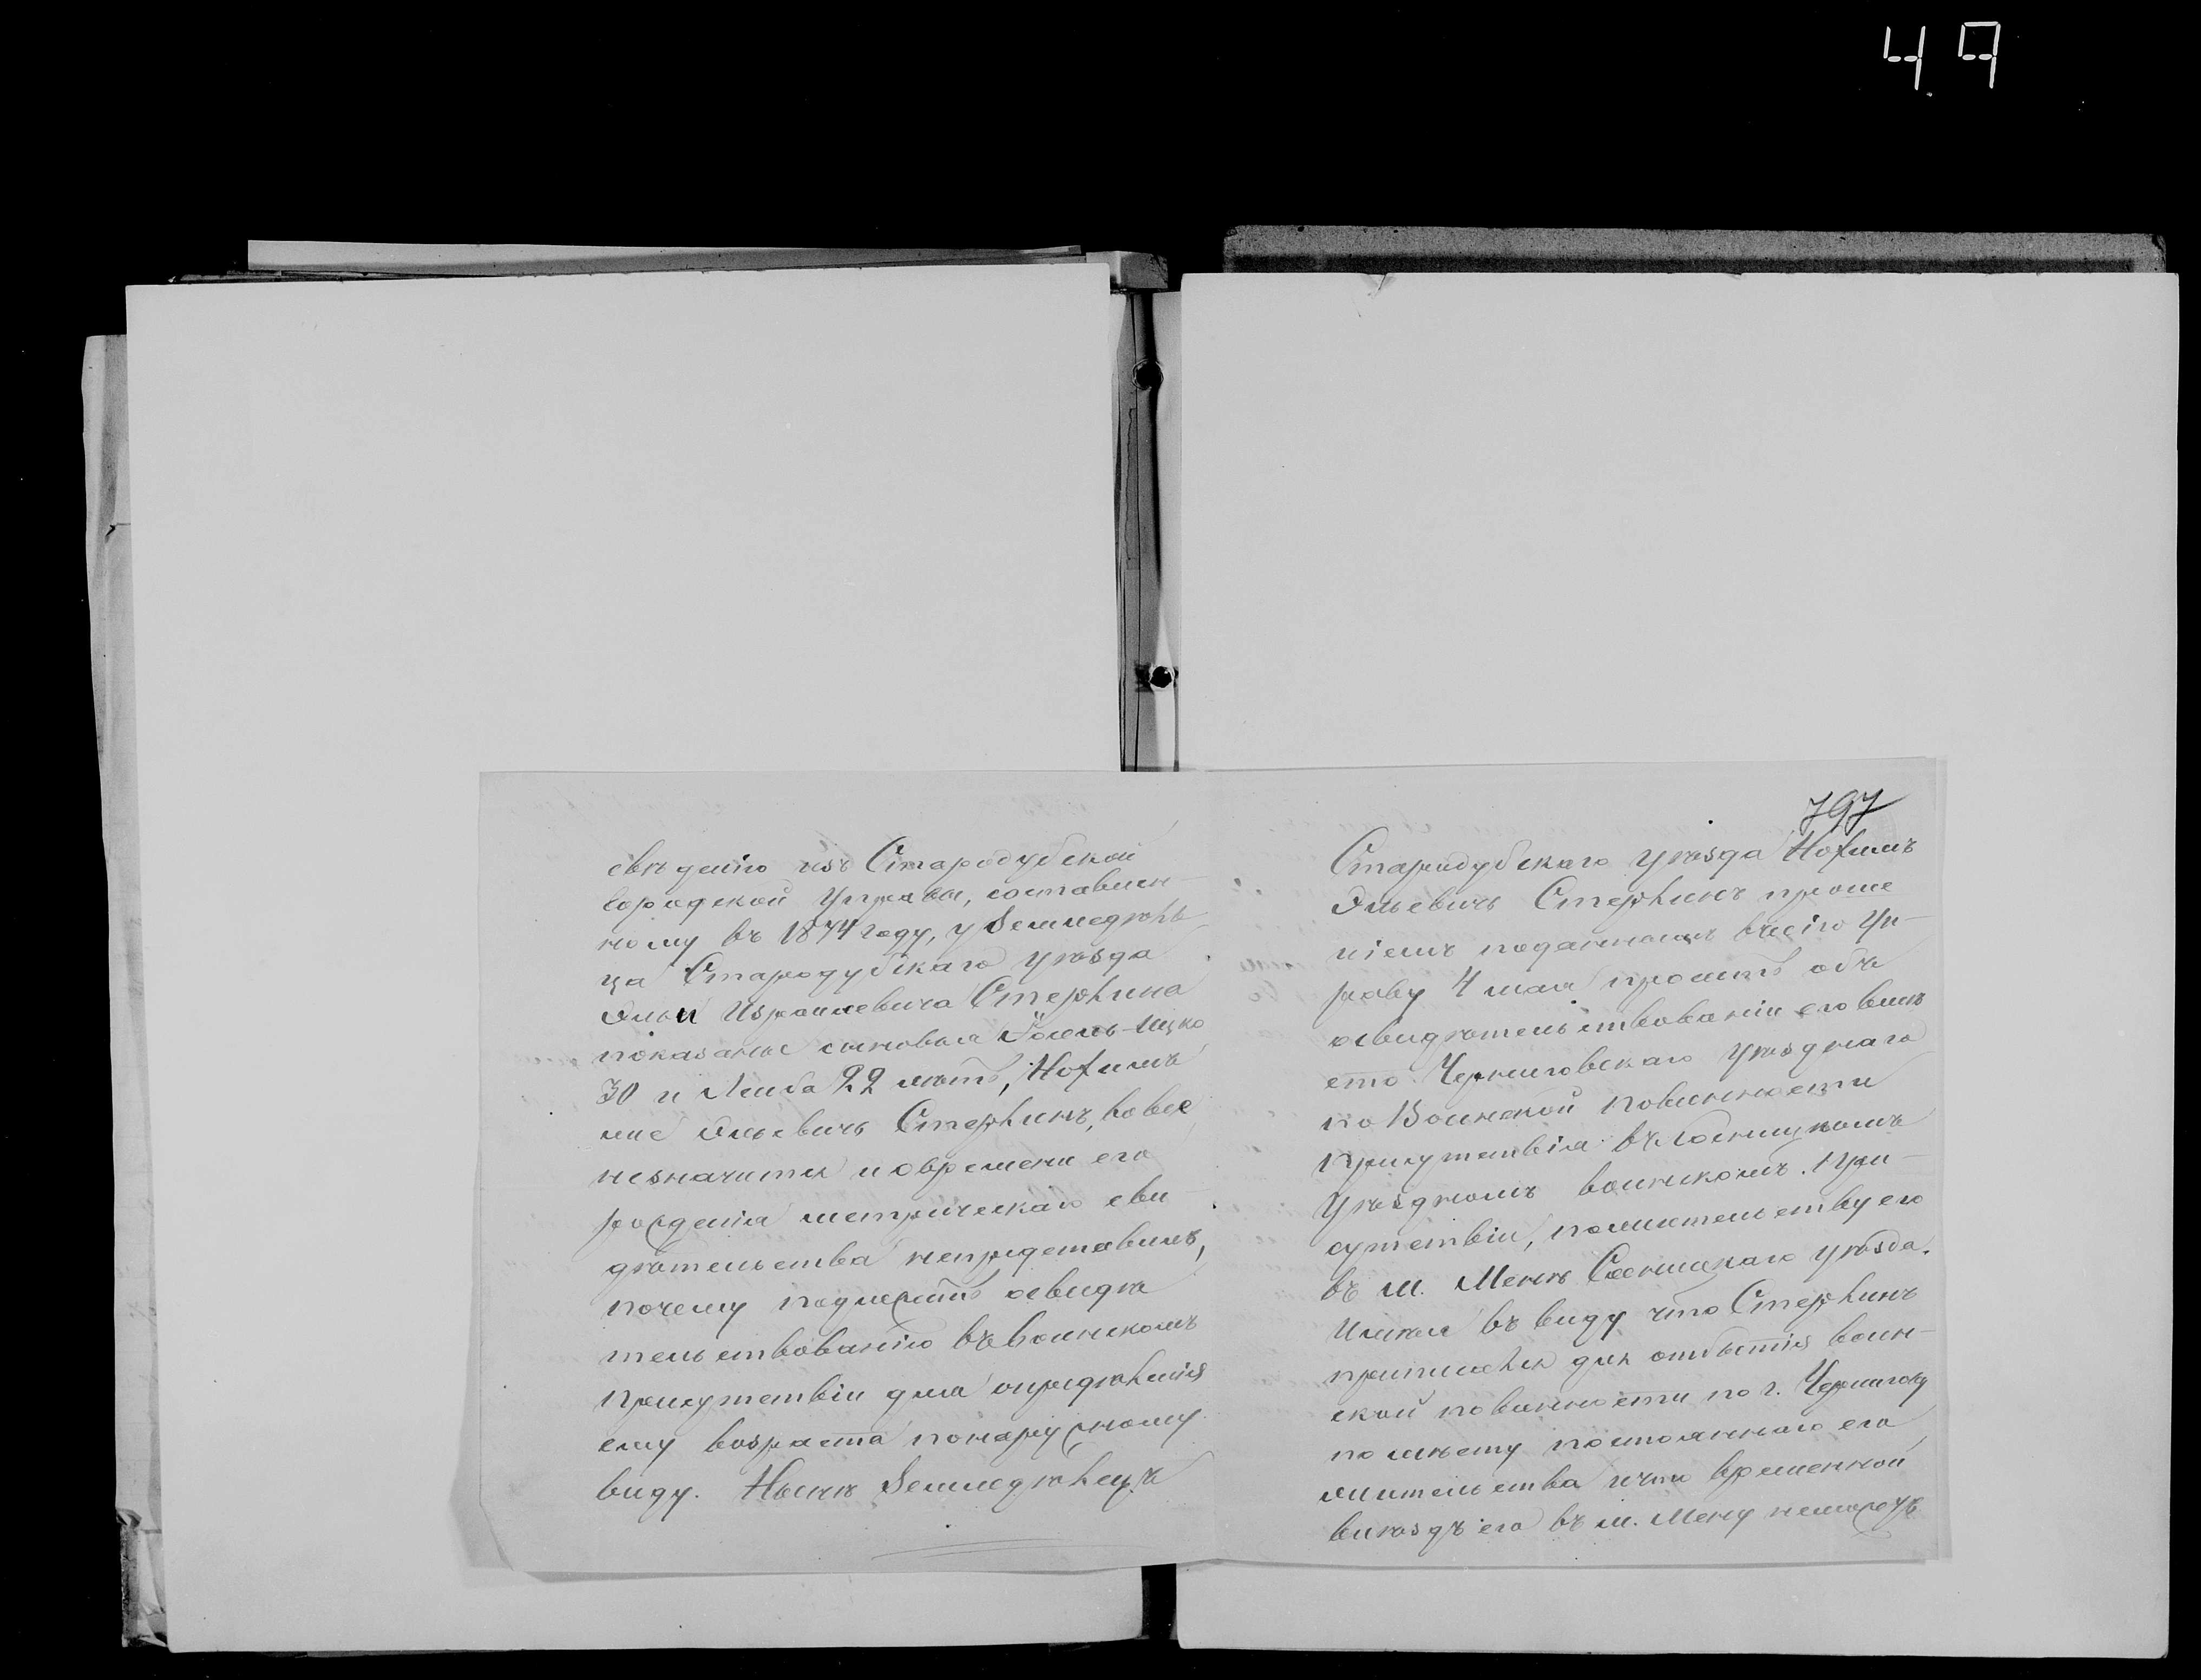 49
797
свѣденію изъ Стародубской
Городской Управы, составлен-
ному въ 1874 году, у Земледѣль-
ца Стародубскаго уѣзда
Эльи Израилевича Стерькина
показаные сыновья Іоель-Ицко
30 и Лейба 22 лѣтъ, Нохимъ
же Эльевичъ Стерькинъ, вовсе
незначится и овремени его
рожденія метрическаго сви-
дѣтельства непредставилъ,
почему подлежитъ освидѣ
тельствованію въ воинскомъ
присутствіи для опредѣленія
ему возраста понаружному
виду. Нынѣ Земледѣлецъ
Стародубскаго уѣзда Нохимъ
Эльевичъ Стерькинъ проше
ніемъ поданнымъ въ сію Уп-
раву 4 мая проситъ объ
освидѣтельствованіи его вмѣ
сто Черниговскаго уѣзднаго
по Воинской повинности
присутствія въ Сосницкомъ
уѣздномъ воинскомъ при-
сутствіи, пожительству его
въ м. Менѣ Сосницкаго уѣзда.
Имѣя въ виду что Стерькинъ
приписался для отбытія воин-
ской повинности по г. Чернигову
по мѣсту постояннаго его
жительства и что временной
выѣздъ его въ м. Мену неможетъ